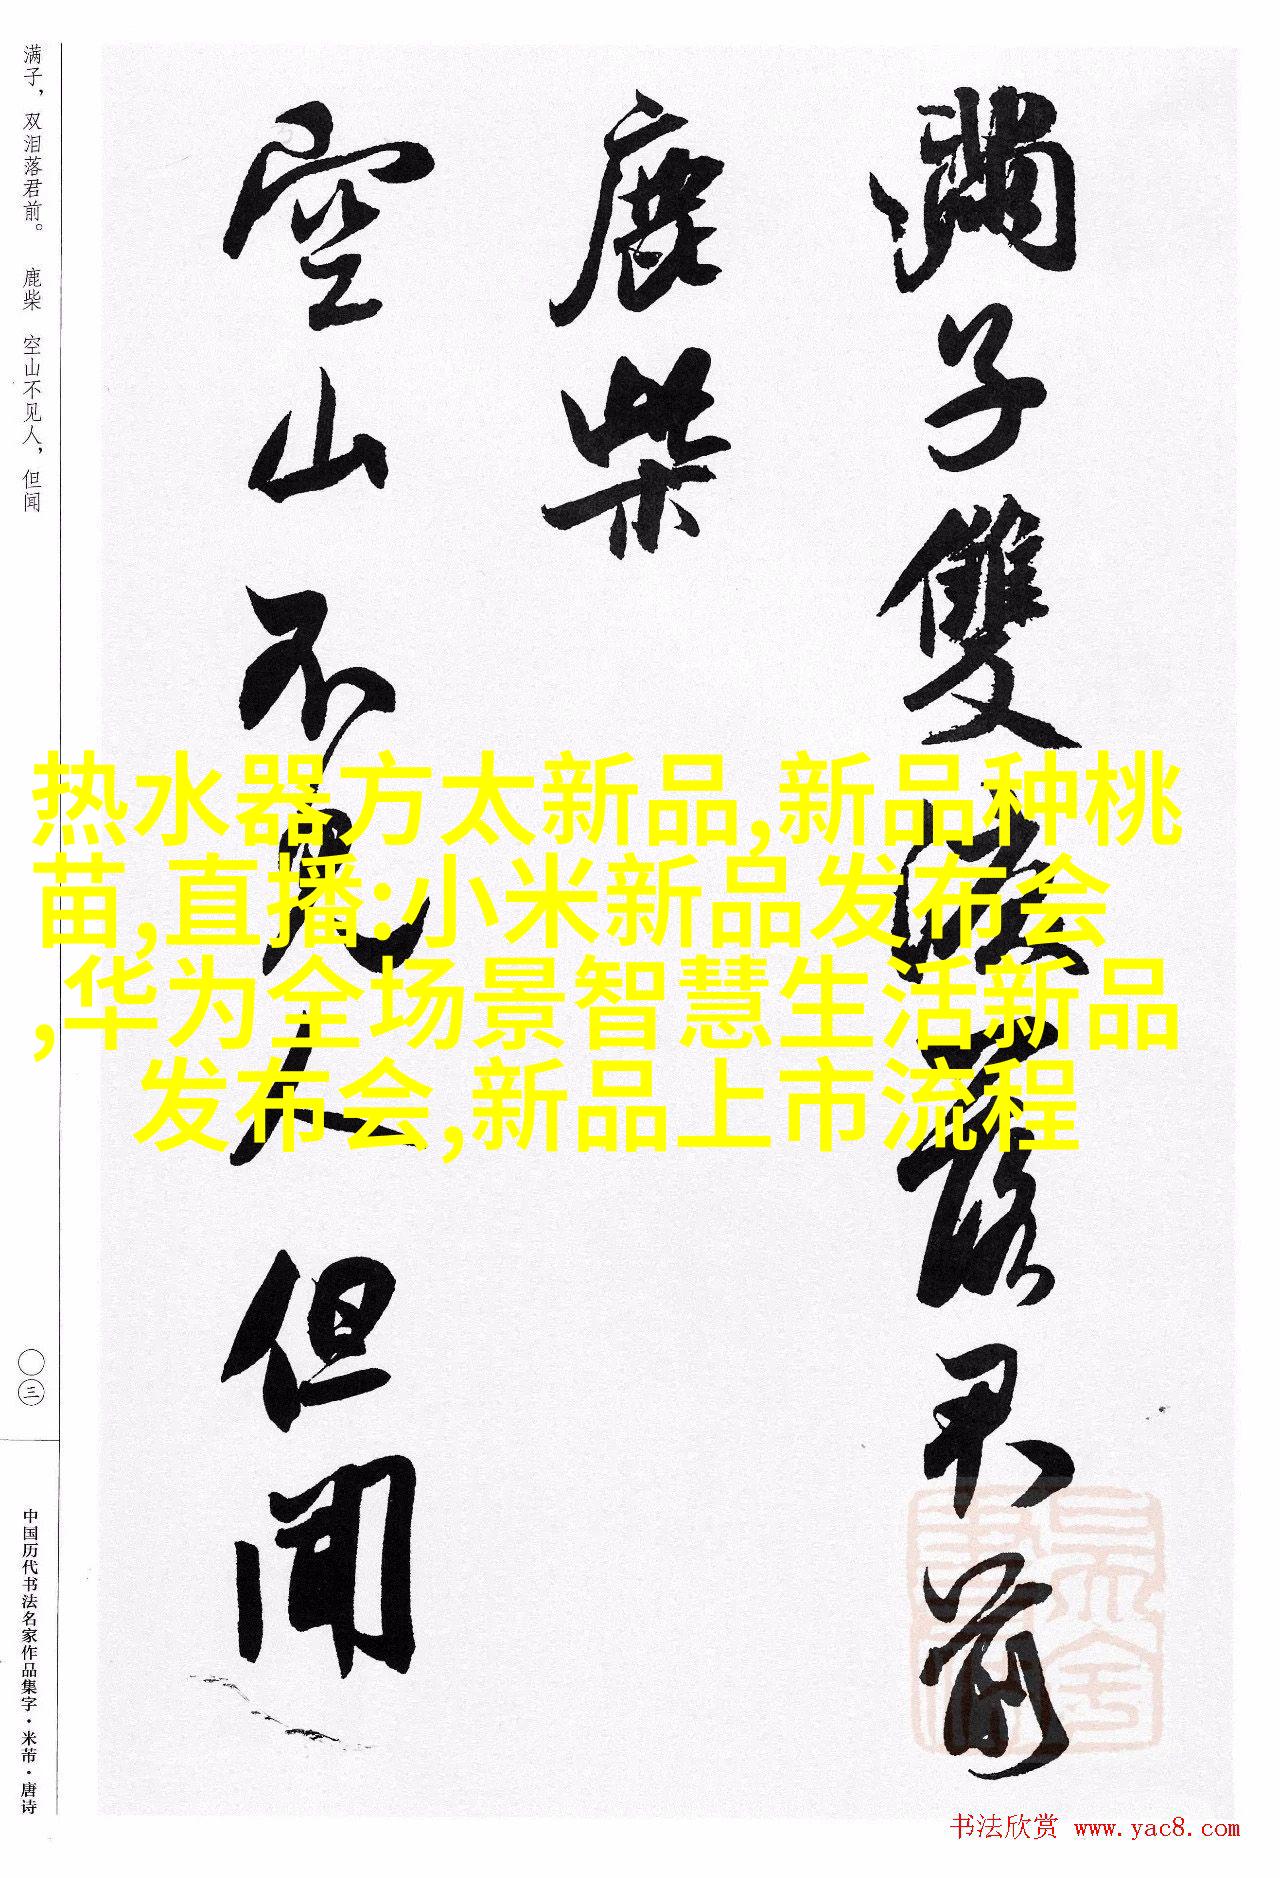 滿子雙淚落君前
鹿柴
空山不見人但聞
满子，双泪落君前。 鹿柴 空山不见人，但闻
〇三
中国历代书法名家作品集字·米芾·唐诗
热水器方太新品,新品种桃
苗,直播:小米新品发布会
,华为全场景智慧生活新品
发布会,新品上市流程
书法欣赏 www.yac8.com